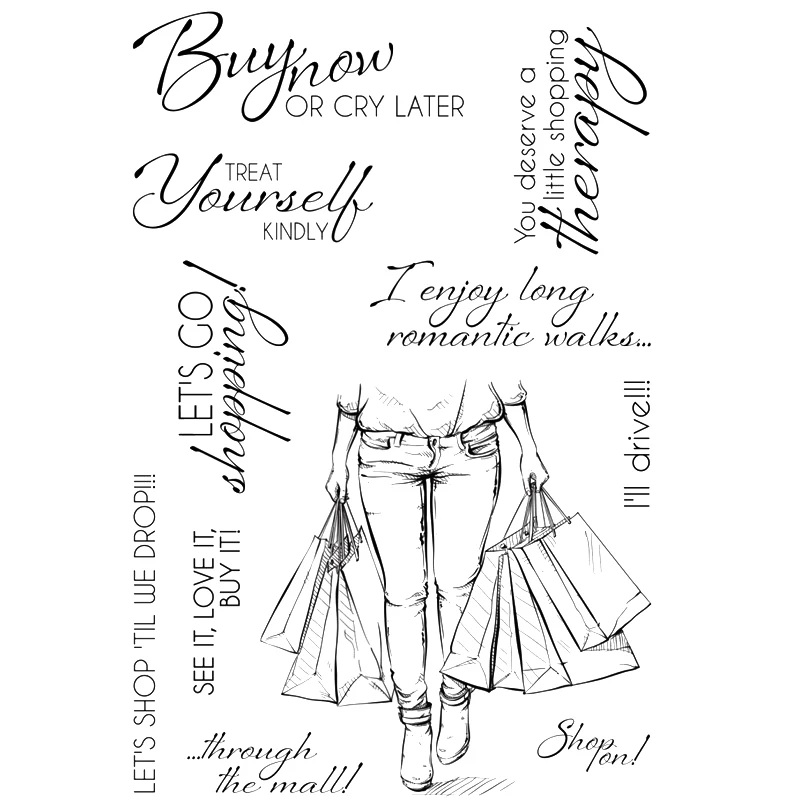 Buy now
OR CRY LATER
You deserve a
little shopping
therapy
TREAT
Yourself
KINDLY
LET'S GO
shopping!
I enjoy long
romantic walks...
I'll drive!!!
LET'S SHOP 'TIL WE DROP!!!
SEE IT, LOVE IT,
BUY IT!
...through
the mall!
Shop
on!